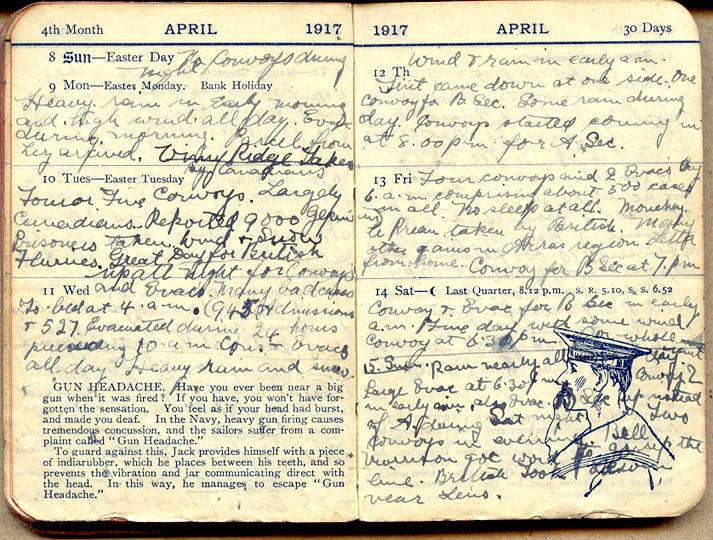 4th Month APRIL 1917
8 Sun—Easter Day No Convoys during
night
9 Mon—Easter Monday. Bank Holiday
Heavy rain in early morning
and high wind all day. Evac
during morning. Parcel from
Liz arrived. Vimy Ridge Taken
by Canadians
10 Tues—Easter Tuesday
Four or Five Convoys. Largely
Canadians. Reported 9000 Germ
Prisoners taken. Wind & Snow
Flurries. Great Day for British
up all night for Convoys
11 Wed and Evacs. Many bad cases
To bed at 4 a.m. (945 Admissions
& 527 Evacuated during 24 hours
preceeding 10 a.m. Con. & Evacs
all day. Heavy rain and snow.
GUN HEADACHE. Have you ever been near a big
gun when it was fired? If you have, you won't have for-
gotten the sensation. You feel as if your head had burst,
and made you deaf. In the Navy, heavy gun firing causes
tremendous concussion, and the sailors suffer from a com-
plaint called "Gun Headache."
To guard against this, Jack provides himself with a piece
of indiarubber, which he places between his teeth, and so
prevents the vibration and jar communicating direct with
the head. In this way, he manages to escape "Gun
Headache."
1917 APRIL 30 Days
Wind & rain in early a.m.
12 Th
Tent came down at one side. One
convoy for B Sec. Some rain during
day. Convoys started coming in
at 8.00 p.m. for A. Sec.
13 Fri Four convoys and 2 Evacs by
6 a.m. comprising about 500 cases
in all. No sleep at all. Monchey
le Preux taken by British. Many
other gains in Arras region
from home. Convoy for B Sec at 7 pm
14 Sat—☾ Last Quarter, 8.12 p.m. S. R. 5.10, S. S. 6.52
Convoy & Evac for B Sec in early
a.m. Fine day with some wind
Convoy at 6:30 p.m. whole
15. Sun. Rain nearly all
Large Evac at 6:30 Convoy
in early am, also Evac. up instead
of A during Sat night. Two
Convoys in evening. Bell
got work to the
line. British took
near Lens.